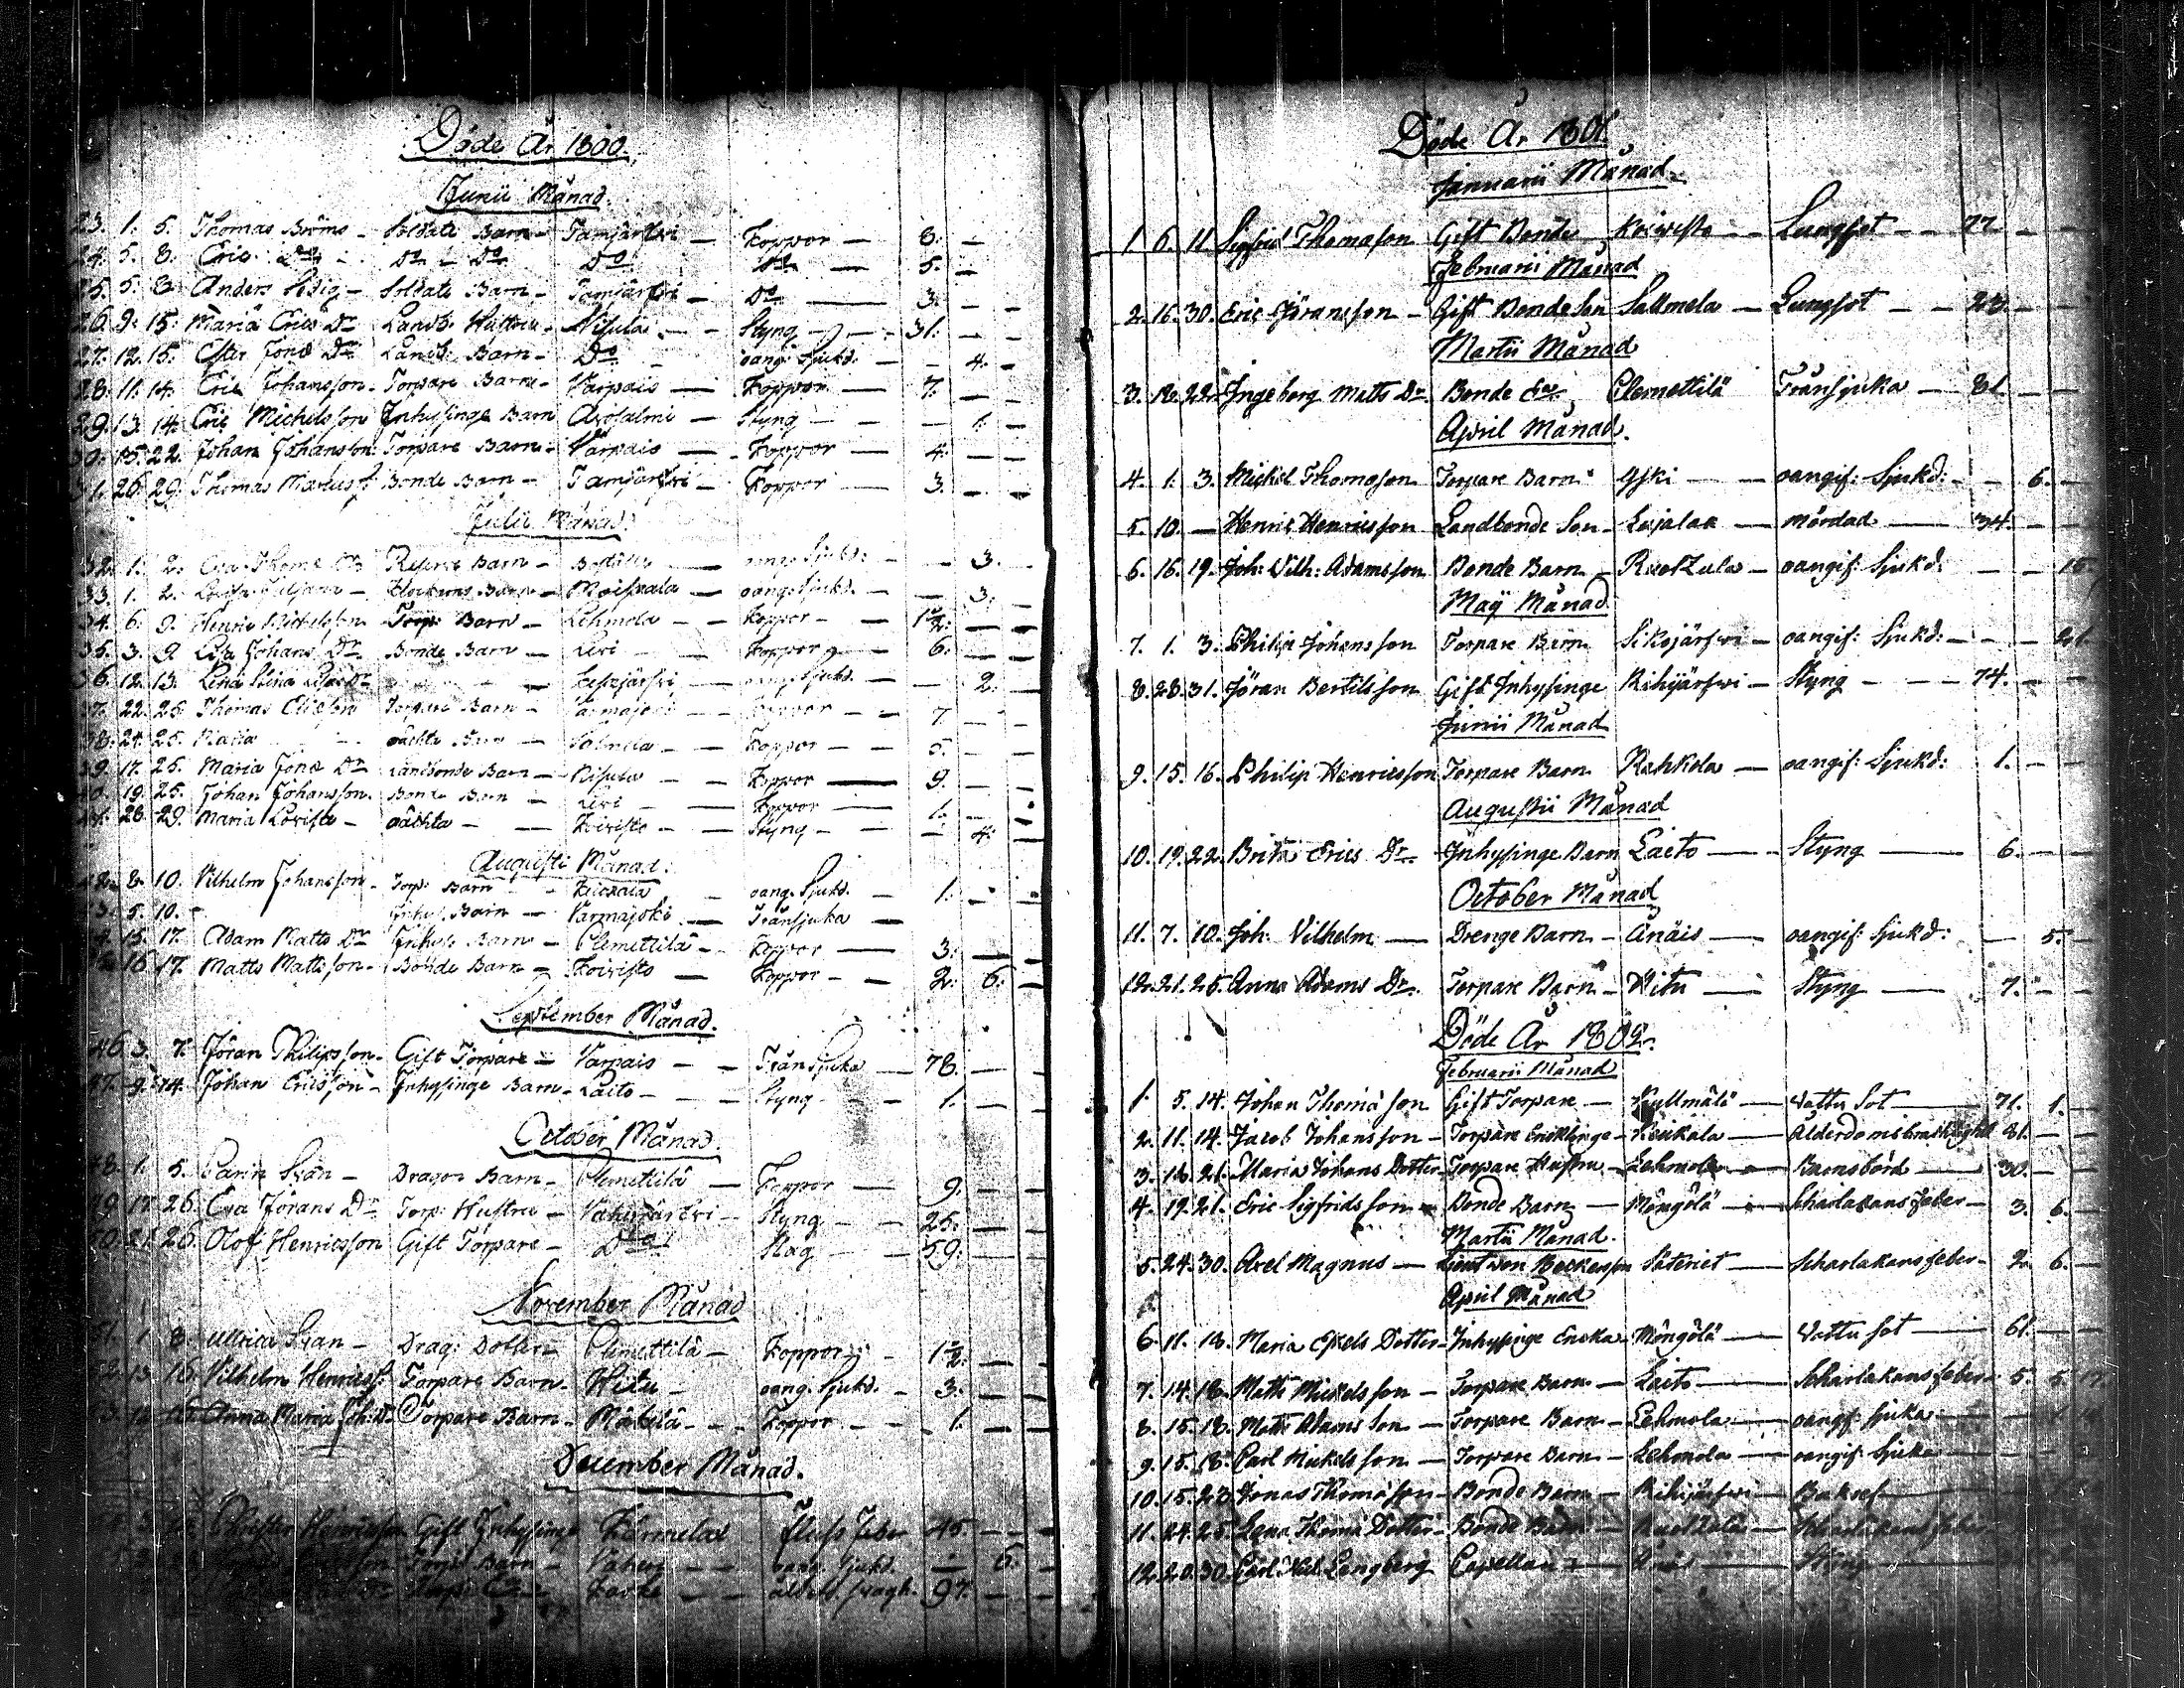 Döde År 1800.
Junii Månad.
23. 1. 5. Thomas Bröms - Soldate Barn - Tamjärfvi - Koppor - 8. -
24. 5. 8. Eric Do - Do - Do Do Do - 5. -
25. 5. 8. Anders - Soldate Barn - Tamjärfvi - Do - 3. - -
26. 9. 15. Maria Erics Dr Landb. Hustru - Nisula - - Styng - - 31. - -
27. 12. 15. Ester Jons Dr Landb. Barn - Do - oang. Sjukd. - - 4. -
28. 11. 14. Eric Johansson - Torpare Barn - Varpais - Koppor - 7. - -
29. 13. 14. Eric Michelsson Inhysinge Barn Avosalmi - Styng - - - 1. -
30. 15. 22. Johan Johansson Torpare Barn - Varpais - Koppor - 4. - -
31. 26. 29. Thomas Bonde Barn - Tamjärfvi - Koppor - 3. - -
Julii Månad.
32. 1. 2. Eva Thoms Dr Barn - - oang. Sjukd. - - 3. -
33. 1. 2. Klockars Barn - Moisala - oang. Sjukd. - - 3. -
34. 6. 9. Henric Michelsson Torp. Barn - Lehmola - - Koppor - - 1½. - -
35. 3. 9. Lisa Johans Dr Bonde Barn - Livi - - Koppor - 6. - -
36. 12. 13. Lena Stina - - oang. Sjukd. - - 2. -
37. 22. 25. Thomas Torpare Barn - Koppor - - 7 - -
38. 24. 25. Maria - - oächta Barn - - - Koppor - - 5. - -
39. 17. 25. Maria Jons Dr Landbonde Barn - Nisula - - Koppor - 9. - -
40. 19. 25. Johan Johansson. Bonde Barn - Livi - - Koppor - 1. - -
41. 28. 29. Maria Lovisa - oächta - - Koivisto - - Styng - - - 4. -
Augusti Månad.
42. 8. 10. Vilhelm Johansson - Torp. Barn - - oang. Sjukd. - 1. - -
43. 5. 10. - Inhys. Barn - Varmajoki - Trånsjuka -
44. 15. 17. Adam Matts Dr Inhys. Barn - Clemettilä - Koppor - 3. - -
45. 16. 17. Matts Mattsson - Bonde Barn - Koivisto - Koppor - - 2. 6. -
September Månad.
46. 3. 7. Jöran Philipsson - Gift Torpare - Varpais - - Trånsjuka - 78. - -
47. 9. 14. Johan Ericsson - Inhysinge Barn - Laito - - - Styng - - 1. - -
October Månad.
48. 1. 5. Carin Svan - Dragon Barn - Clemettilä - Koppor - 9. - -
49. 17. 26. Eva Jörans Dr Torp. Hustru - Vahijärfvi - Styng - - 25. - -
50. 21. 26. Olof Henricsson Gift Torpare - Do Slag - - 59. - -
November Månad
51. 1. 8. Ullrica Svan - Drag. Dotter - Clemettilä - Koppor - 1½. - -
52. 13. 16. Vilhelm Henricss. Torpare Barn - Hitu - oang. Sjukd. - 3. - -
Anna Maria Joh. D. Torpare Barn - Märkilä - - Koppor - - 1. - -
December Månad.
Christer Henricsson Gift Inhysinge Fluss Feber 45. - -
Torp. Barn - - - oang. Sjukd. - 6. -
- - ålderd. svagh. 97. - -
Döde År 1801.
Januarii Månad.
1 6. 11 Sigfrid Thomasson Gift Bonde Koivisto - - Lungsot - - 77 - -
Februarii Månad
2. 16. 30. Eric Jöransson - Gift Bonde Son Sallmela - Lungsot - - 23. - -
Martii Månad
3. 18. 22. Ingeborg Matts Dr Bonde Ea Clemettilä Trånsjuka - 81. - -
April Månad.
4. 1. 3. Mickel Thomasson Torpare Barn Yski - - oangif: Sjukd: - - 6. -
5. 10. - Henric Henricsson Landbonde Son - Lajalax - mördad - 34. - -
6. 16. 19. Joh: Vilh: Adamsson Bonde Barn - Ruotzula - oangif: Sjukd: - - 15.
Maÿ Månad
7. 1. 3. Philip Johansson Torpare Barn Sikojärfvi - oangif: Sjukd: - - - 21.
8. 28. 31. Jöran Bertilsson Gift Inhysinge Rihijärfvi - Styng - - - 74. - -
Junii Månad
9. 15. 16. Philip Henricsson Torpare Barn Rahkola - oangif: Sjukd: 1. - -
Augustii Månad
10. 19. 22. Brita Erics Dr. Inhysinge Barn Laito - Styng - 6. - -
October Månad
11. 7. 10. Joh: Vilhelm - Drenge Barn - Änäis - oangif: Sjukd: - 5. -
12. 21. 25. Anna Adams Dr. Torpare Barn - Hitu - Styng - 7. - -
Döde År 1802.
Februarii Månad
1. 5. 14. Johan Thomasson Gift Torpare - Hyllmälä - Vattu Sot - 71. 1. -
2. 11. 14. Jacob Johansson - Torpare Encklinge - - Ålderdomsbräcklighet 81. - -
3. 16. 21. Maria Johans Dotter - Torpare Hustru - Lehmola - Barnsbörd - 30. - -
4. 19. 21. Eric Sigfridsson - Bonde Barn - Möngölä - Scharlakans feber - 3. 6. -
Martii Månad.
5. 24. 30. Axel Magnus - Säteriet - Scharlakans feber - 2. 6. -
April Månad
6. 11. 18. Maria Axels Dotter - Inhysinge Encka - Möngölä - Vattu sot - 61. - -
7. 14. 18. Matts Mickelsson - Torpare Barn - Laito - Scharlakans feber - 5. 5.
8. 15. 18. Matts Adams Son - Torpare Barn - Lehmola - oangif: Sjuka -
9. 15. 18. Carl Mickelsson - Torpare Barn - Lehmola - oangif: Sjuka -
10. 15. 23. Jonas Thomasson - Bonde Barn - Rihijärfvi -
11. 24. 25. Lena Thoms Dotter - Bonde Barn - Ruotzula - Scharlakans feber
12. 20. 30. Carl Lengberg Capellan - - Styng -